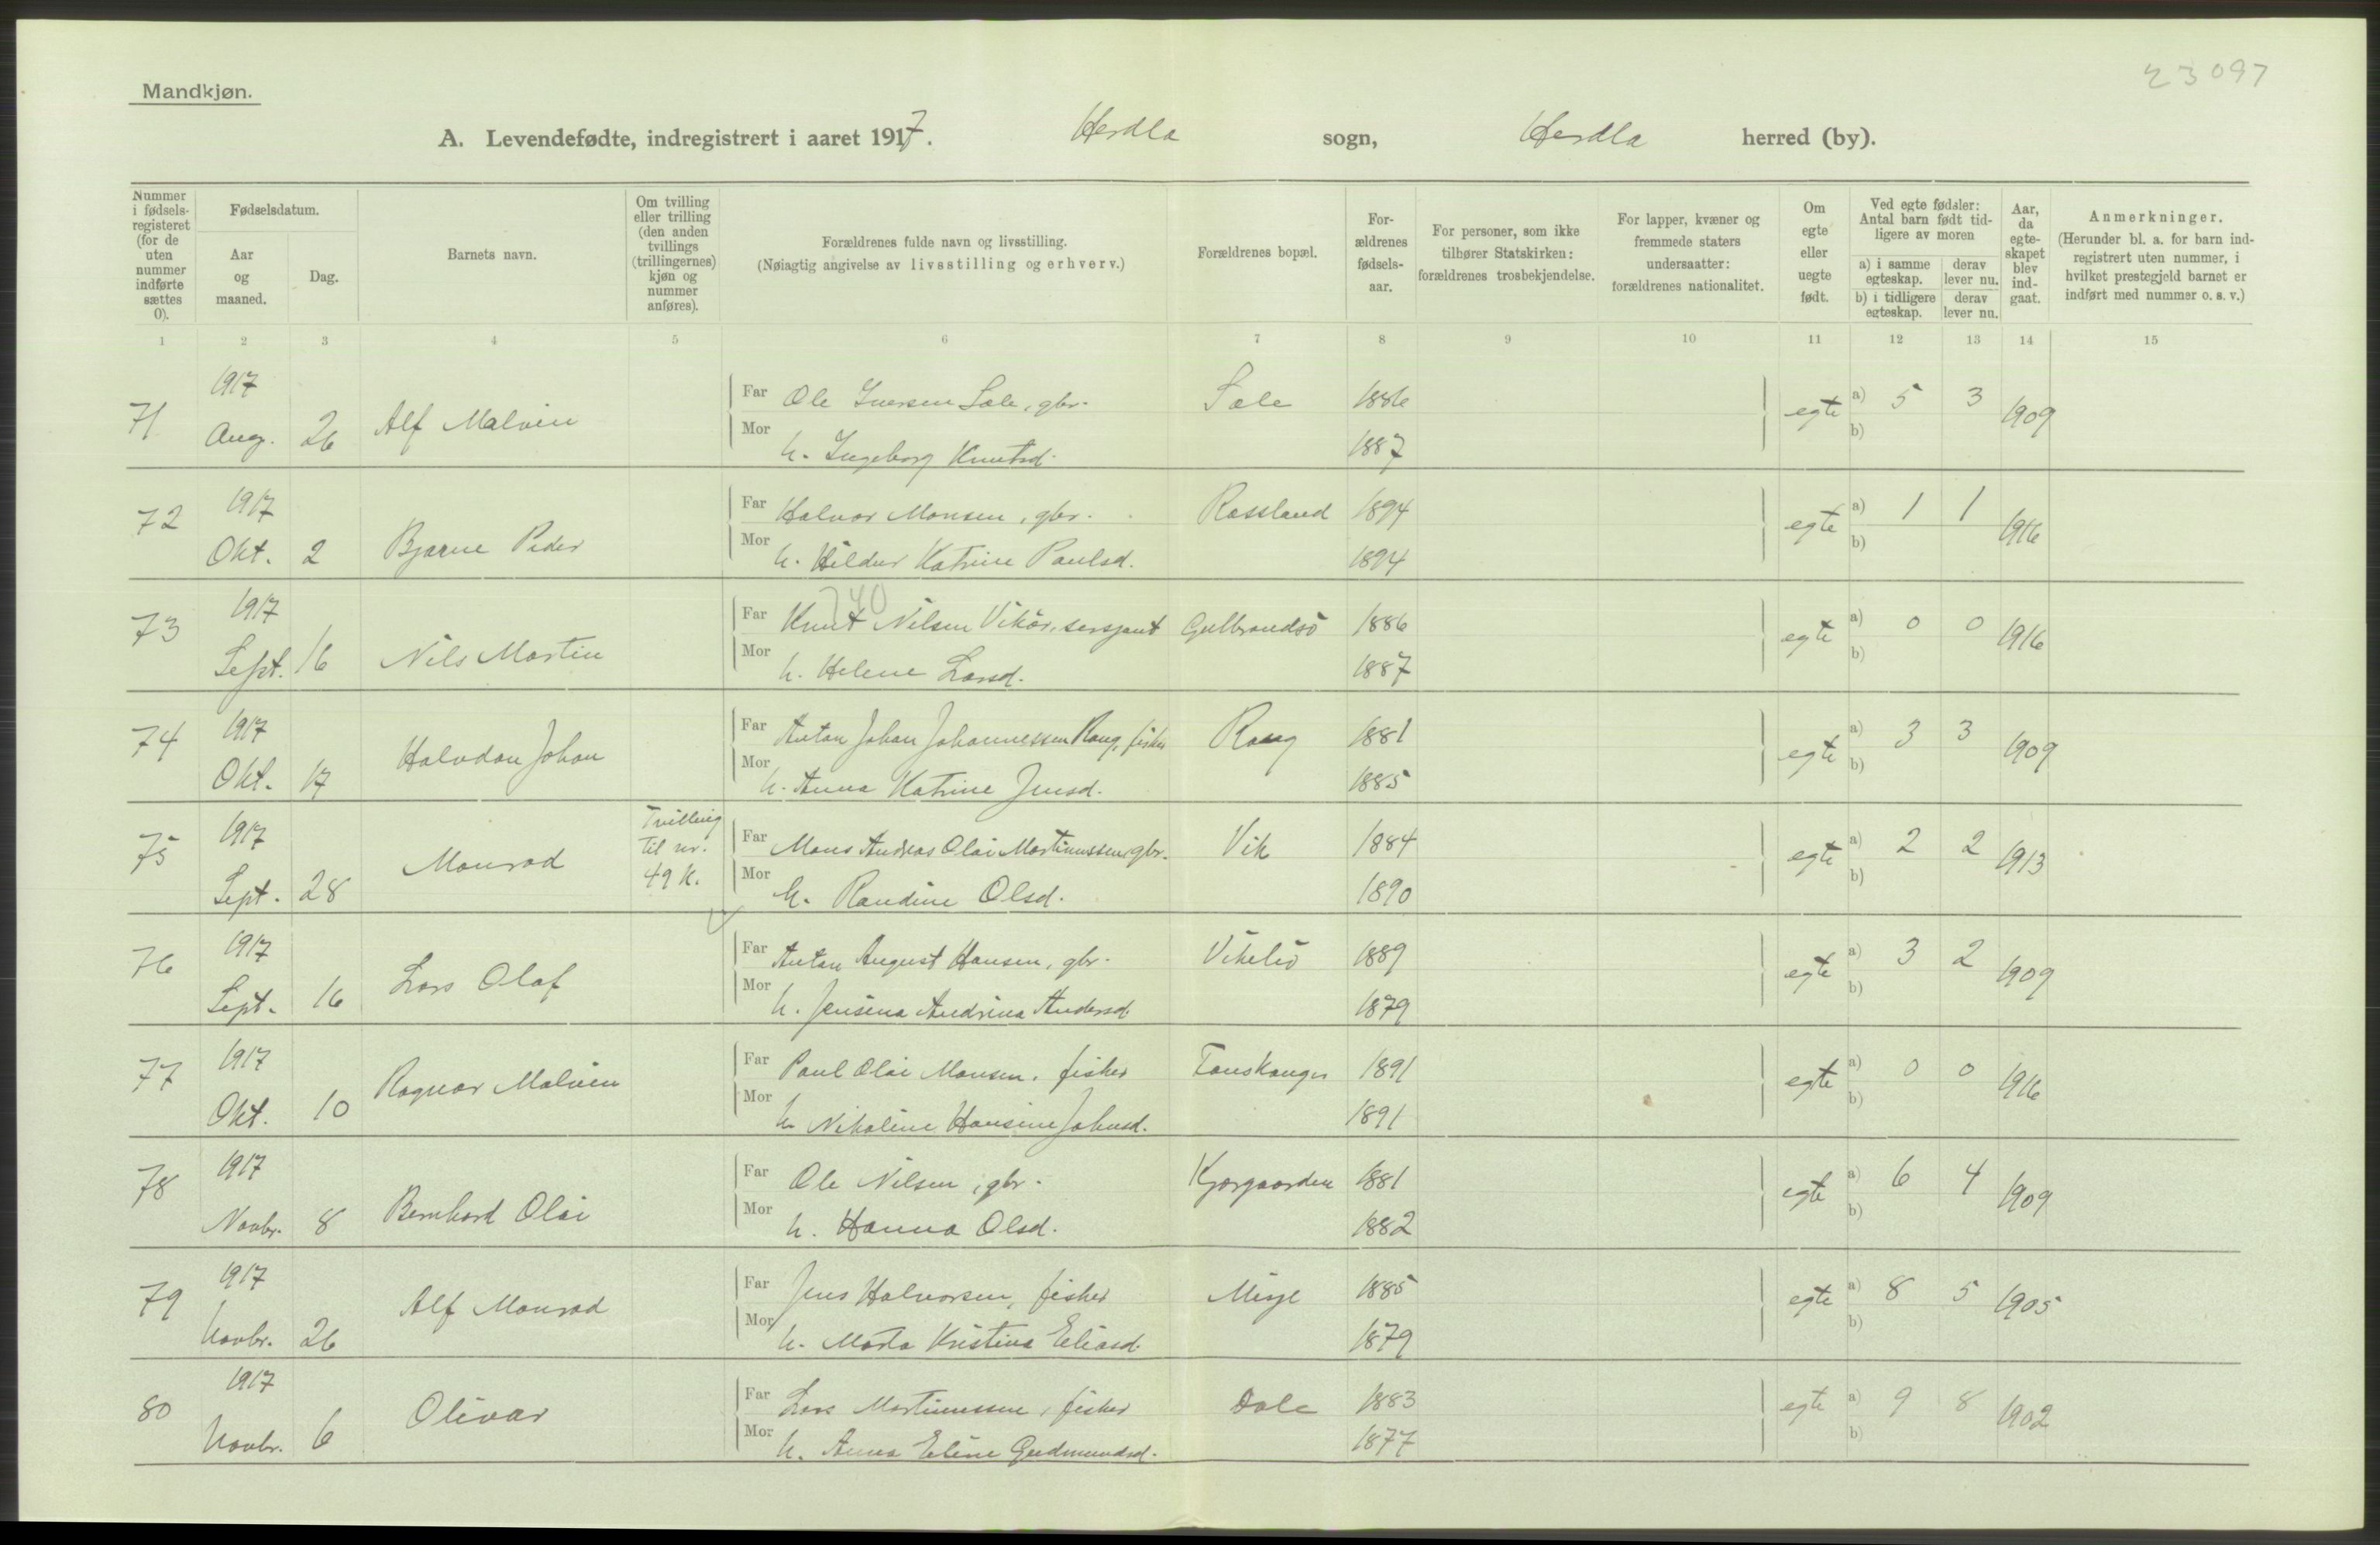 23097
Mandkjøn.
A. Levendefødte, indregistrert i aaret 1917. Herdla sogn, Herdla herred (by).
Nummer i fødselsregisteret (for de uten nummer indførte sættes 0).
Fødselsdatum.
Aar og maaned.
Dag.
Barnets navn.
Om tvilling eller trilling (den anden tvillings (trillingernes) kjøn og nummer anføres).
Forældrenes fulde navn og livsstilling.
(Nøiagtig angivelse av livsstilling og erhverv.)
Forældrenes bopæl.
Forældrenes fødselsaar.
For personer, som ikke tilhører Statskirken: forældrenes trosbekjendelse.
For lapper, kvæner og fremmede staters undersaatter: forældrenes nationalitet.
Om egte eller uegte født.
Ved egte fødsler: Antal barn født tidligere av moren
a) i samme egteskap. derav lever nu.
b) i tidligere egteskap. derav lever nu.
Aar, da egteskapet blev indgaat.
Anmerkninger.
(Herunder bl. a. for barn indregistrert uten nummer, i hvilket prestegjeld barnet er indført med nummer o. s. v.)
1 2 3 4 5 6 7 8 9 10 11 12 13 14 15
71 1917 Aug. 26 Alf Malvin Far Ole Iversen Sæle, gbr. Sæle 1886 egte a) 5 3 1909
Mor h. Ingeborg Knutsd. 1887 b)
72 1917 Okt. 2 Bjarne Peder Far Halvor Monsen, gbr. Rossland 1894 egte a) 1 1 1916
Mor h. Hildur Katrine Paulsd. 1894 b)
740
73 1917 Sept. 16 Nils Martin Far Knut Nilsen Vikør, sersjant Gulbrandsö 1886 egte a) 0 0 1916
Mor h. Helene Larsd. 1887 b)
74 1917 Okt. 17 Halvdan Johan Far Anton Johan Johannessen Rong, fisker Rong 1881 egte a) 3 3 1909
Mor h. Anna Katrine Jensd. 1885 b)
75 1917 Sept. 28 Monrad Tvilling til nr. 49 K. Far Mons Andreas Olai Martinussen, gbr. Vik 1884 egte a) 2 2 1913
Mor h. Randine Olsd. 1890 b)
76 1917 Sept. 16 Lars Olaf Far Anton August Hansen, gbr. 1889 egte a) 3 2 1909
Mor h. Jensina Andrina Andersd. 1879 b)
77 1917 Okt. 10 Ragnar Malvin Far Paul Olai Monsen, fisker Fonskanger 1891 egte a) 0 0 1916
Mor h. Nikoline Hansine Johnsd. 1891 b)
78 1917 Novbr. 8 Bernhard Olai Far Ole Nilsen, gbr. Kjærgaarden 1881 egte a) 6 4 1909
Mor h. Hanna Olsd. 1882 b)
79 1917 Novbr. 26 Alf Monrad Far Jens Halvorsen, fisker Misje 1885 egte a) 8 5 1905
Mor h. Marta Kristine Eliasd. 1879 b)
80 1917 Novbr. 6 Olivar Far Lars Martinussen, fisker Dale 1883 egte a) 9 8 1902
Mor h. Anna Eline Gudmundsd. 1877 b)